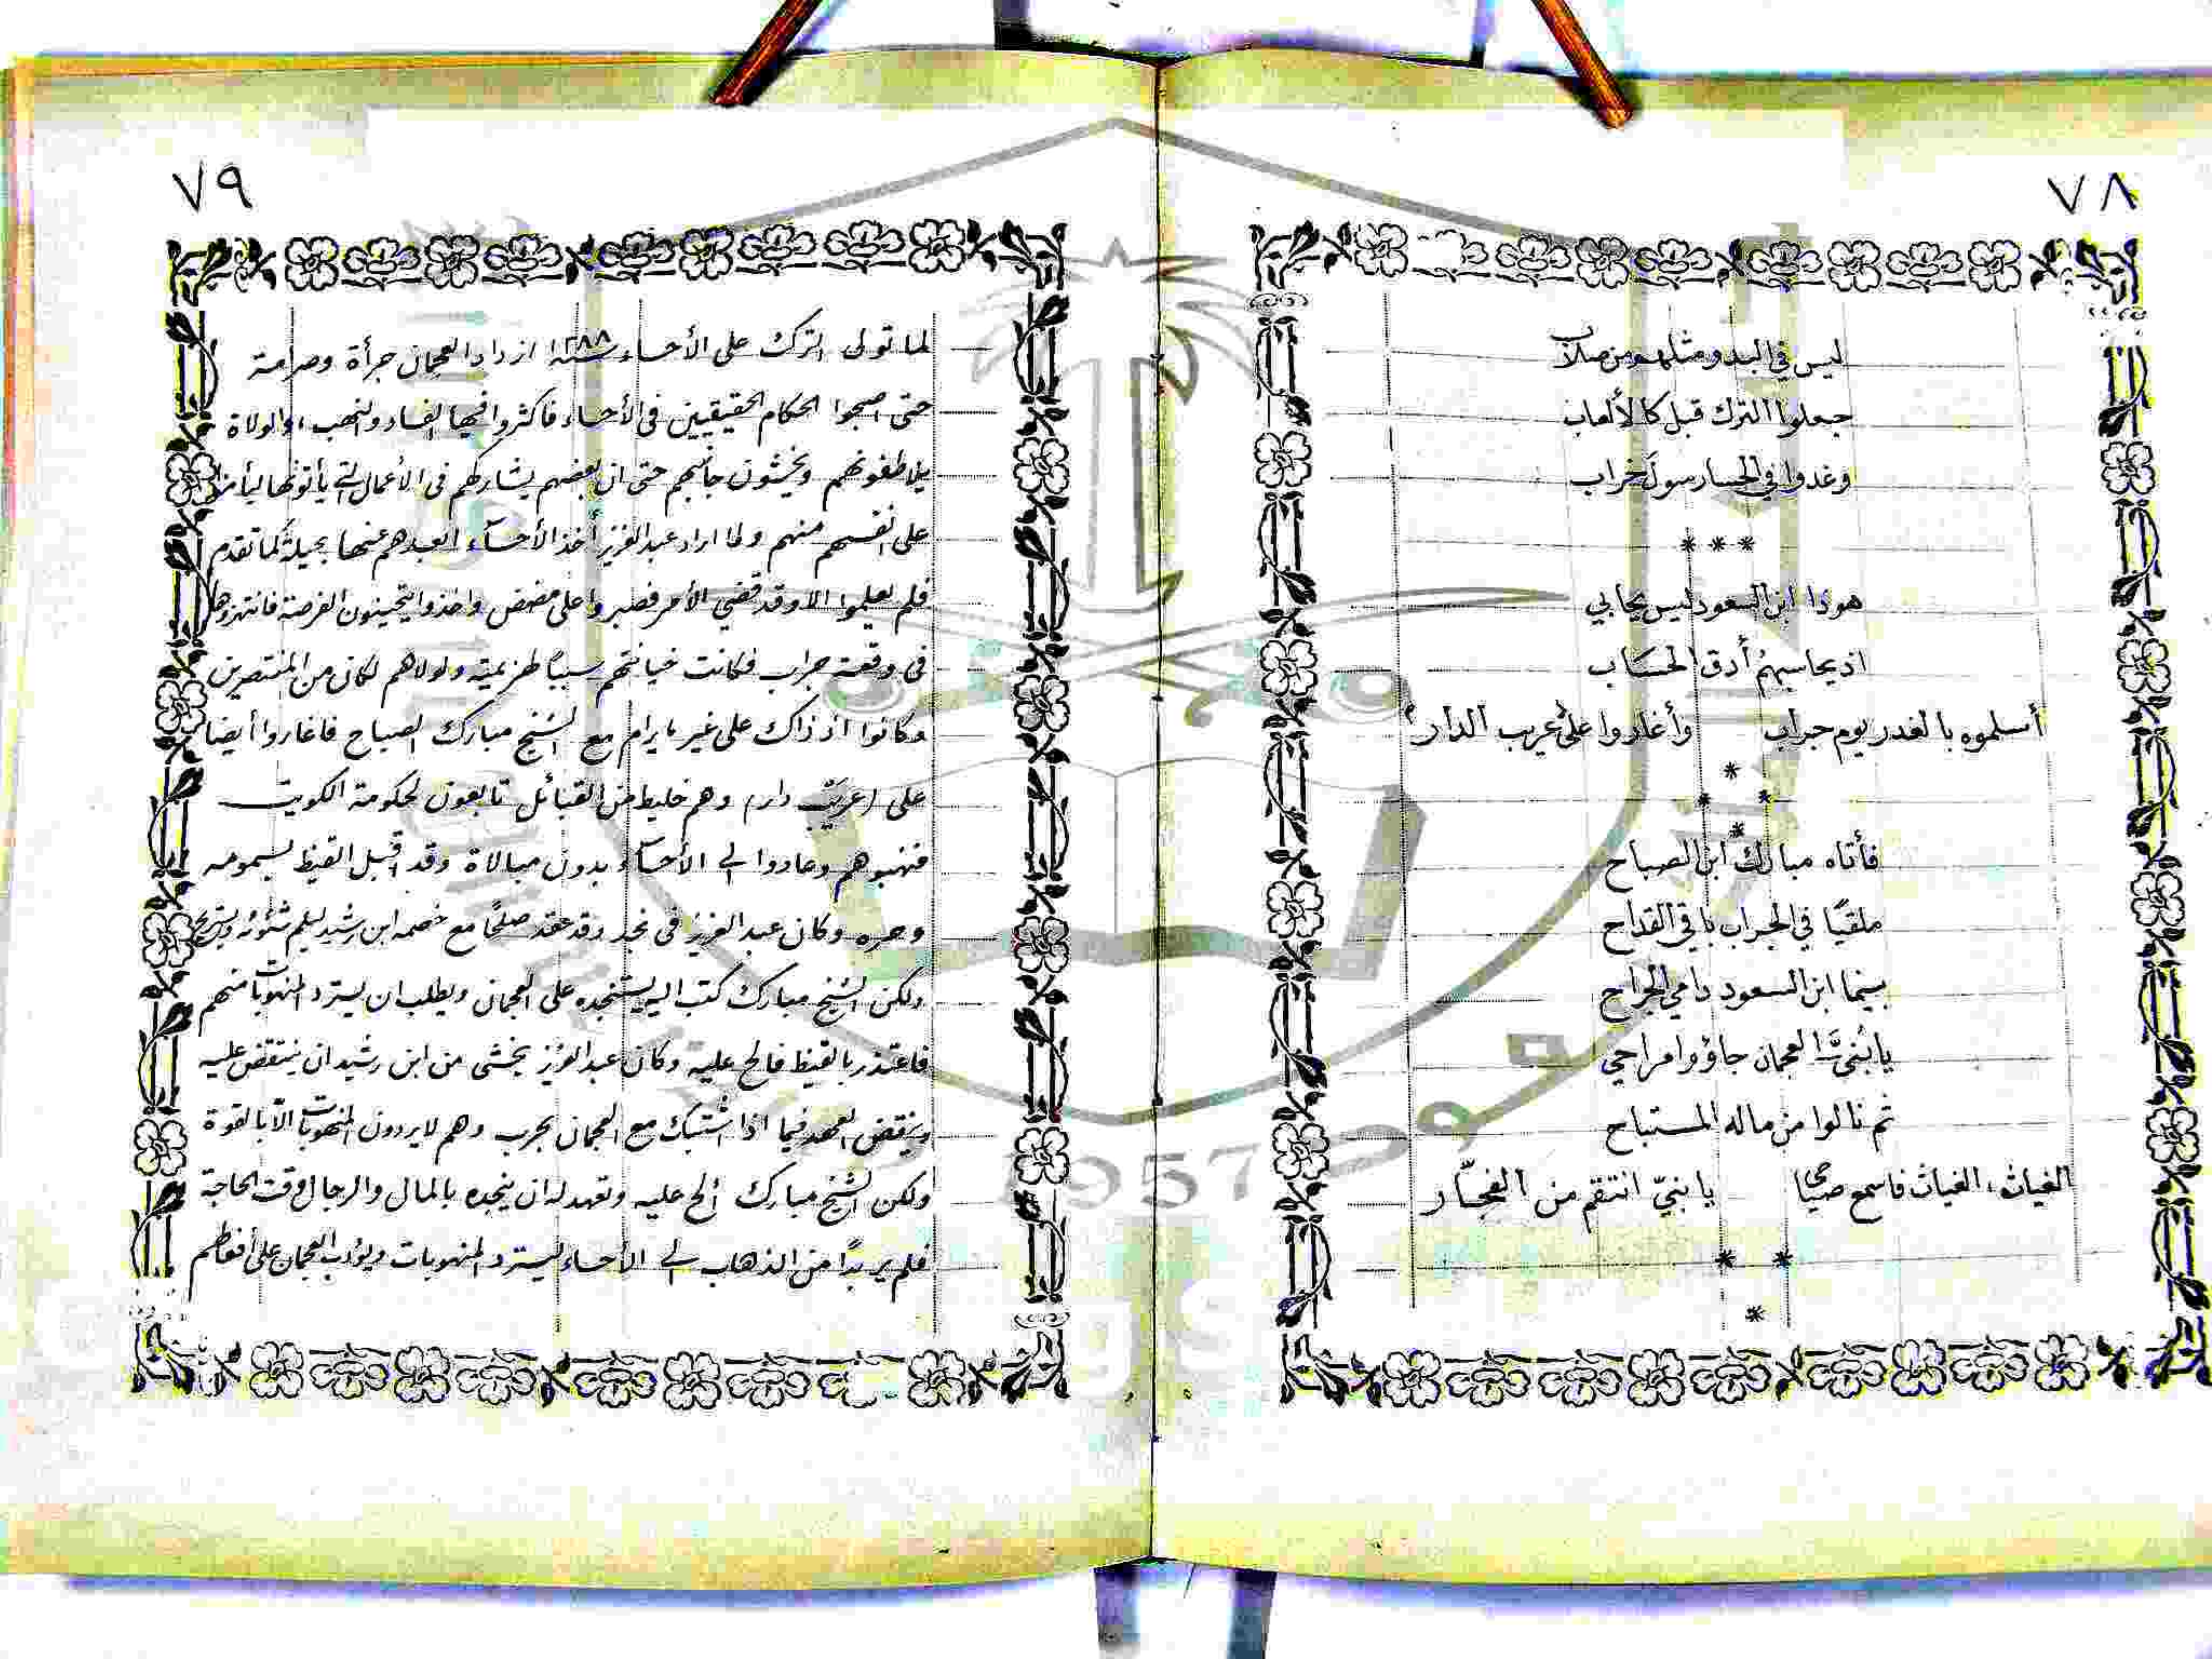 ٧٨
ليس في البدو مثلهم من صلاب
جعلوا الترك قبل كالألعاب
وغدوا في الحسا رسول خراب
***
هوذا ابن السعود ليس يحابي
اذ يحاسبهُم أدق الحسَاب
أسلموه بالغدر يوم جراب وأغاروا على عريب الدار
*
* *
*
فأتاه مبارك ابن الصباح
ملقيًا في الجراب باقي القداح
بينما ابن السعود دامي الجراح
يا بُنيَّ العجمان جاؤوا مراحي
ثم نالوا من ماله المستباح
الغياث، الغياث فاسمع صياحي يا بنيّ انتقم من الفجّار
* *
*
٧٩
لما تولى الترك على الأحساء سنة ١٢٨٨ ازداد العجمان جرأة وصرامة
حتى اصبحوا الحكام الحقيقيين في الأحساء فأكثروا فيها الفساد والنهب، والولاة
يلاطفونهم ويخشون جانبهم حتى ان بعضهم يشاركهم في الأعمال التي يأتونها ليأمنوا
على انفسهم منهم ولما اراد عبدالعزيز أخذ الأحسآء ابعدهم عنها بحيلة كما تقدم
فلم يعلموا الا وقد قضي الأمر فصبروا على مضض واخذوا يتحينون الفرصة فانتهزوها
في وقعة جراب فكانت خيانتهم سببًا لهزيمته ولولاهم لكان من المنتصرين
وكانوا اذ ذاك على غير ما يرام مع الشيخ مبارك الصباح فاغاروا أيضا
على (عريب دار) وهم خليط من القبائل تابعون لحكومة الكويت
فنهبوهم وعادوا الى الأحسآء بدون مبالاة وقد اقبل القيظ بسمومه
وحره وكان عبد العزيز في نجد وقد عقد صلحًا مع خصمه ابن رشيد ليلم شئونه ويستريح
ولكن الشيخ مبارك كتب اليه يستنجده على العجمان ويطلب ان يسترد المنهوبات منهم
فاعتذر بالقيظ فالح عليه وكان عبد العزيز يخشى من ابن رشيد ان ينتقض عليه
وينقض العهد فيما اذا اشتبك مع العجمان بحرب وهم لا يردون المنهوبات الّا بالقوة
ولكن الشيخ مبارك ألح عليه وتعهد له ان ينجده بالمال والرجال وقت الحاجة
فلم ير بدًا من الذهاب الى الأحساء ليسترد المنهوبات ويؤدب العجمان على أفعالهم
1957